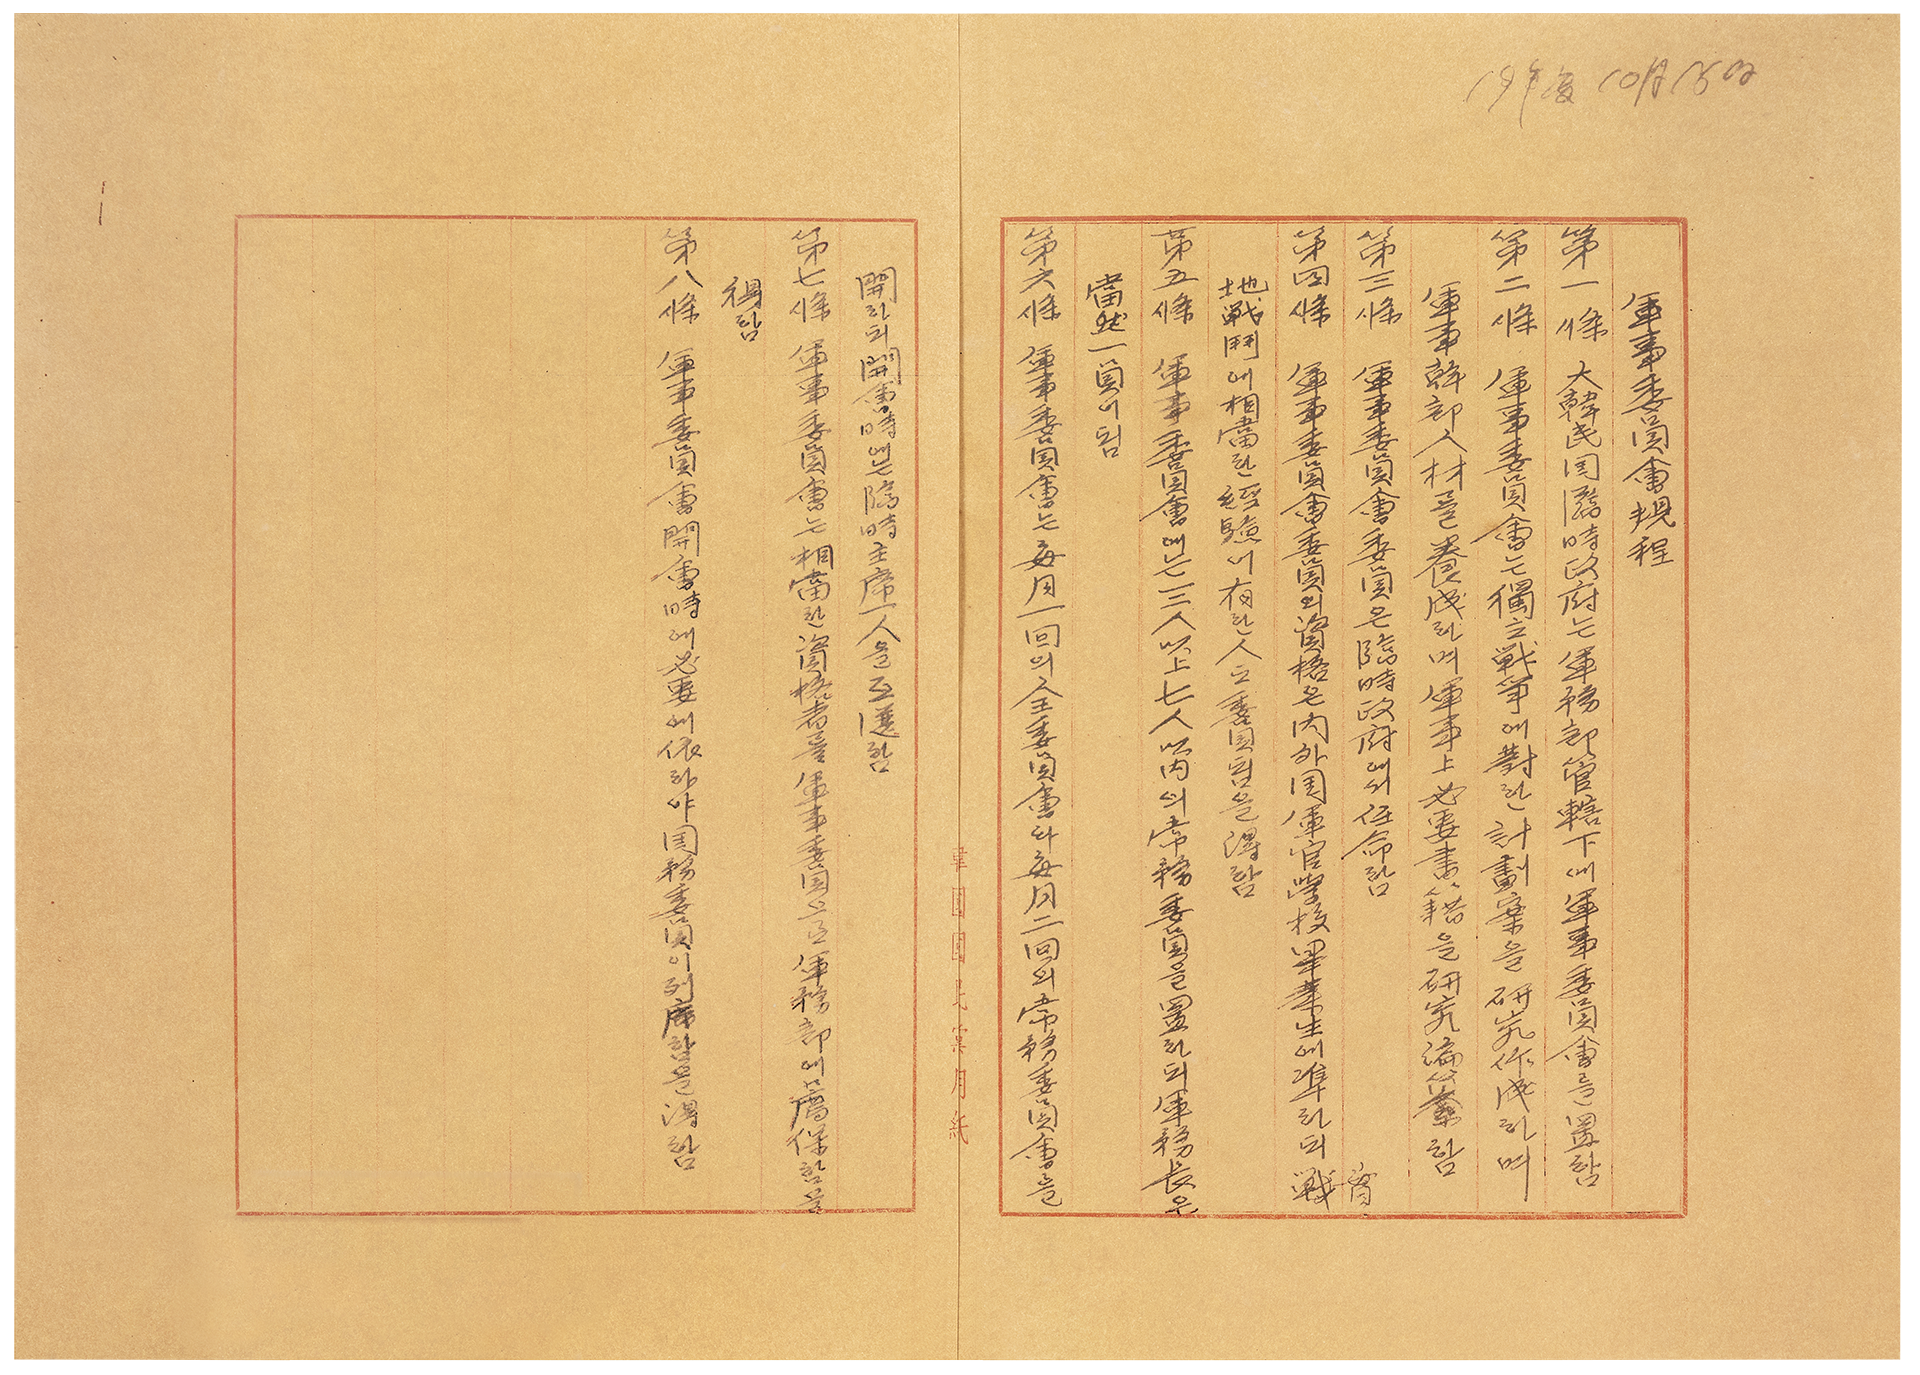 19年度 10月15日
軍事委員會規程
第一條 大韓民国臨時政府는 軍務部管轄下에 軍事委員會를 置함
第二條 軍事委員會는 獨立戰爭에 對한 計劃案을 硏究作成하며
軍事幹部人材를 養成하며 軍事上必要書籍을 硏究編纂함
第三條 軍事委員會委員은 臨時政府에서 任命함
第四條 軍事委員會委員의 資格은 內外国軍官學校畢業生에 準하되 戰
地戰鬪에 相當한 經驗이 有한 人도 委員됨을 得함
第五條 軍事委員會에는 三人以上七人以內의 常務委員을 置하되 軍務長은
當然一員이 됨
第六條 軍事委員會는 每月一回의 全委員會와 每月二回의 常務委員會를
開하되 開會時에는 臨時主席一人을 互選함
第七條 軍事委員會는 相當한 資格者를 軍事委員으로 軍務部에 薦保함을
得함
第八條 軍事委員會開會時에 必要에 依하야 国務委員이 列席함을 得함
韓國國民黨用紙